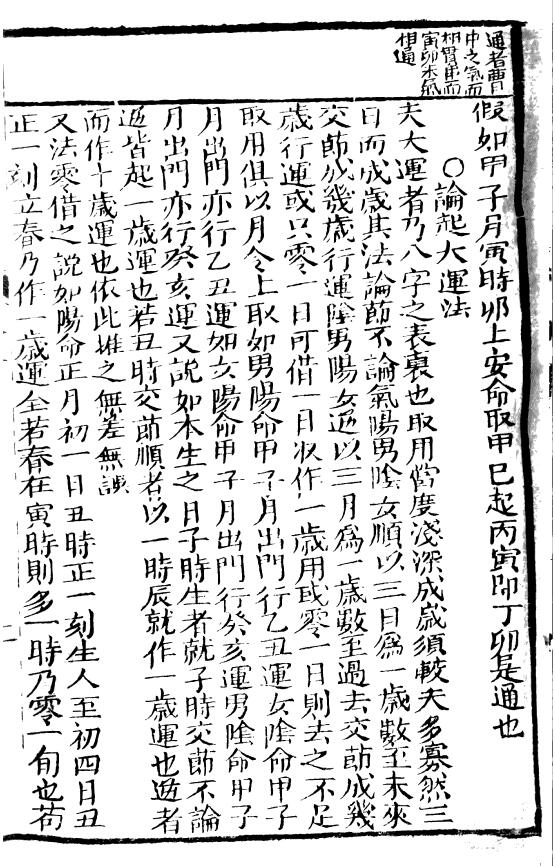 通者曹
中之氣而
柄胃虛而
寅卯木氣
相通
假如甲子月寅時卯上安命取甲巳起丙寅即丁卯是通也
○論起大運法
夫大運者乃八字之表裏也取用當度淺深成歲須較夫多寡然三
日而成歲其法論節不論氣陽男陰女順以三日為一歲數至未來
交節成幾歲行運陰男陽女逆以三月為一歲數至過去交節成幾
歲行運或只零一日可借一日收作一歲用或零一日則去之不足
取用俱以月令上取如男陽命甲子月出門行乙丑運女陰命甲子
月出門亦行乙丑運如女陽命甲子月出門行癸亥運男陰命甲子
月出門亦行癸亥運又說如本生之日子時生者就子時交節不論
逆皆起一歲運也若丑時交節順者以一時辰就作一歲運也逆者
而作十歲運也依此推之無差無誤
又法零借之說如陽命正月初一日丑時正一刻生人至初四日丑
正一刻立春乃作一歲運全若春在寅時則多一時乃零一旬也若